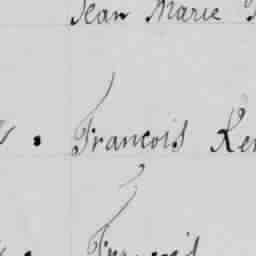 Jean Marie
François Ker
François